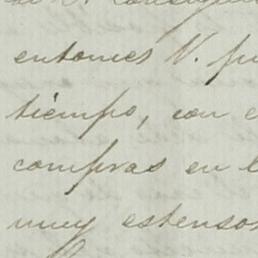 entonces V. pu
tiempo, con e
compras en l
muy estensos